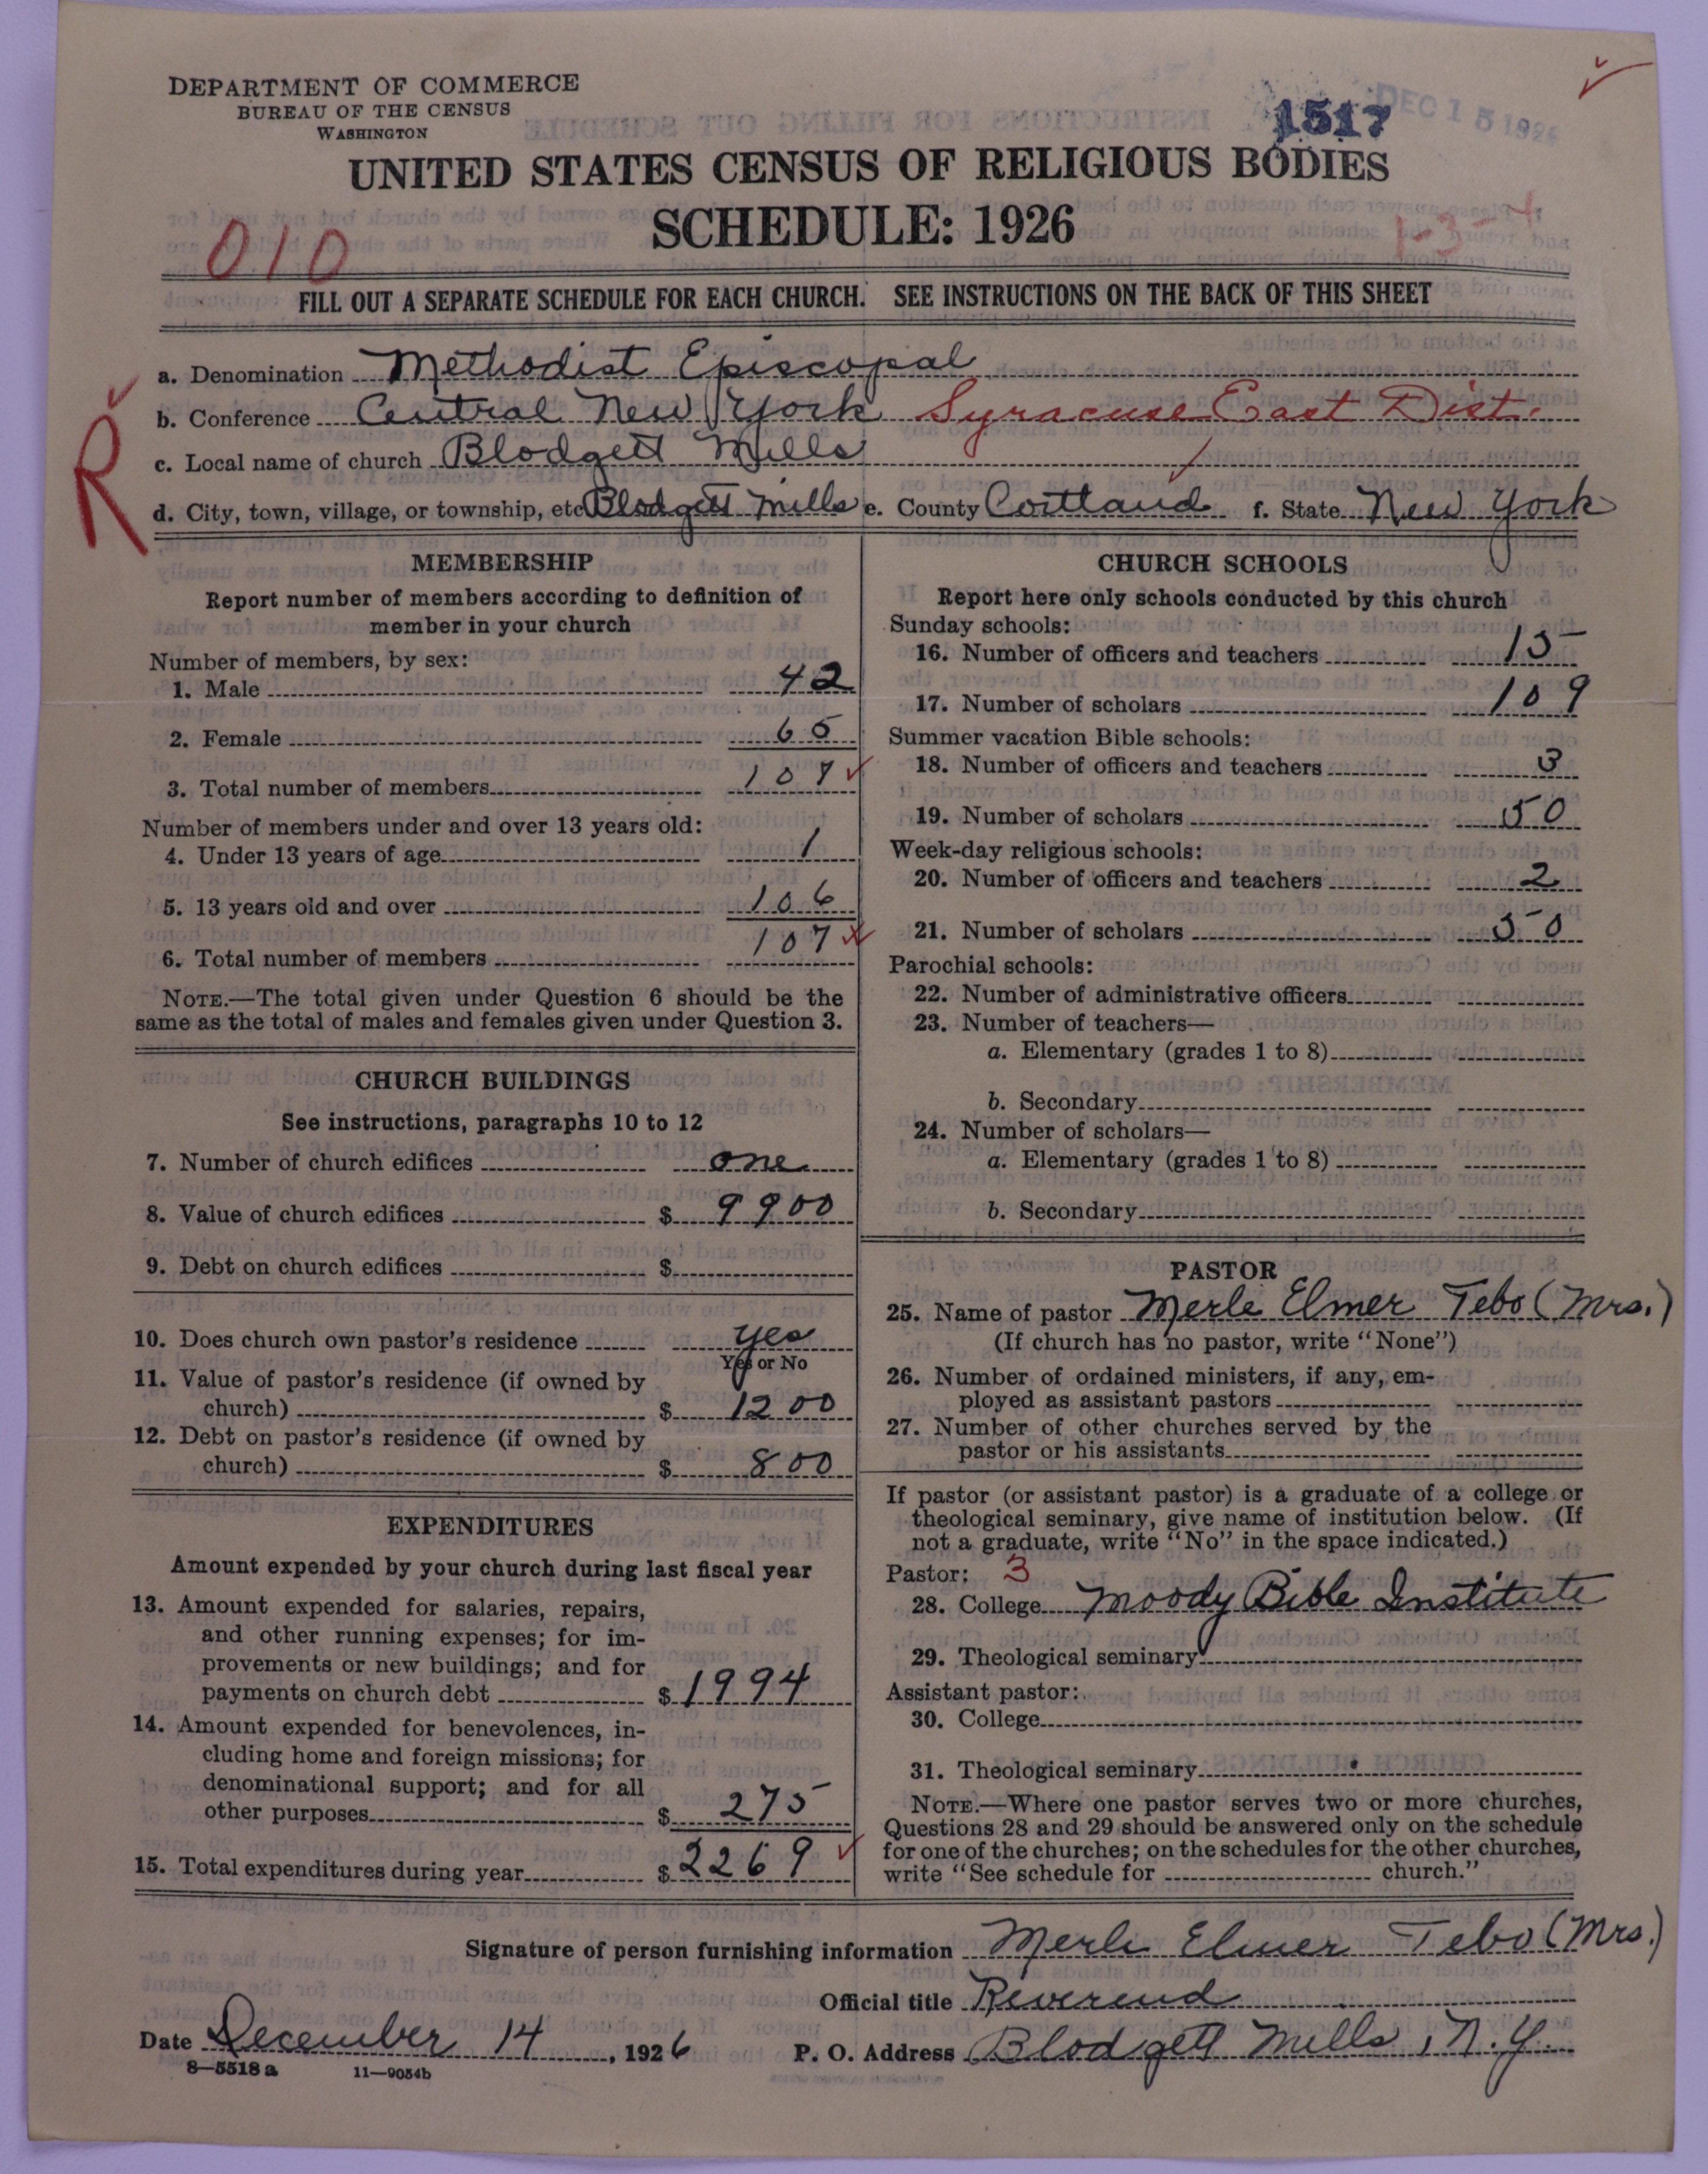 DEPARTMENT OF COMMERCE
BUREAU OF THE CENSUS
WASHINGTON
1517
DEC 15 1926
UNITED STATES CENSUS OF RELIGIOUS BODIES
SCHEDULE: 1926
010
1-3-4
FILL OUT A SEPARATE SCHEDULE FOR EACH CHURCH. SEE INSTRUCTIONS ON THE BACK OF THIS SHEET
R
a. Denomination Methodist Episcopal
b. Conference Central New York Syracuse East Dist.
c. Local name of church Blodgett Mills
d. City, town, village, or township, etc. Blodgett Mills e. County Cortland f. State New York
MEMBERSHIP
Report number of members according to definition of
member in your church
Number of members, by sex:
1. Male 42
2. Female 65
3. Total number of members 107
Number of members under and over 13 years old:
4. Under 13 years of age 1
5. 13 years old and over 106
6. Total number of members 107
NOTE.—The total given under Question 6 should be the
same as the total of males and females given under Question 3.
CHURCH BUILDINGS
See instructions, paragraphs 10 to 12
7. Number of church edifices one
8. Value of church edifices $ 9900
9. Debt on church edifices $
10. Does church own pastor's residence yes
Yes or No
11. Value of pastor's residence (if owned by
church) $ 1200
12. Debt on pastor's residence (if owned by
church) $ 800
EXPENDITURES
Amount expended by your church during last fiscal year
13. Amount expended for salaries, repairs,
and other running expenses; for im-
provements or new buildings; and for
payments on church debt $ 1994
14. Amount expended for benevolences, in-
cluding home and foreign missions; for
denominational support; and for all
other purposes $ 275
15. Total expenditures during year $ 2269
CHURCH SCHOOLS
Report here only schools conducted by this church
Sunday schools:
16. Number of officers and teachers 15
17. Number of scholars 109
Summer vacation Bible schools:
18. Number of officers and teachers 3
19. Number of scholars 50
Week-day religious schools:
20. Number of officers and teachers 2
21. Number of scholars 50
Parochial schools:
22. Number of administrative officers
23. Number of teachers—
a. Elementary (grades 1 to 8)
b. Secondary
24. Number of scholars—
a. Elementary (grades 1 to 8)
b. Secondary
PASTOR
25. Name of pastor Merle Elmer Tebo (Mrs.)
(If church has no pastor, write "None")
26. Number of ordained ministers, if any, em-
ployed as assistant pastors
27. Number of other churches served by the
pastor or his assistants
If pastor (or assistant pastor) is a graduate of a college or
theological seminary, give name of institution below. (If
not a graduate, write "No" in the space indicated.)
Pastor: 3
28. College Moody Bible Institute
29. Theological seminary
Assistant pastor:
30. College
31. Theological seminary
NOTE.—Where one pastor serves two or more churches,
Questions 28 and 29 should be answered only on the schedule
for one of the churches; on the schedules for the other churches,
write "See schedule for church."
Signature of person furnishing information Merle Elmer Tebo (Mrs.)
Official title Reverend
Date December 14, 1926 P. O. Address Blodgett Mills, N.Y.
8—5518 a 11—9054b